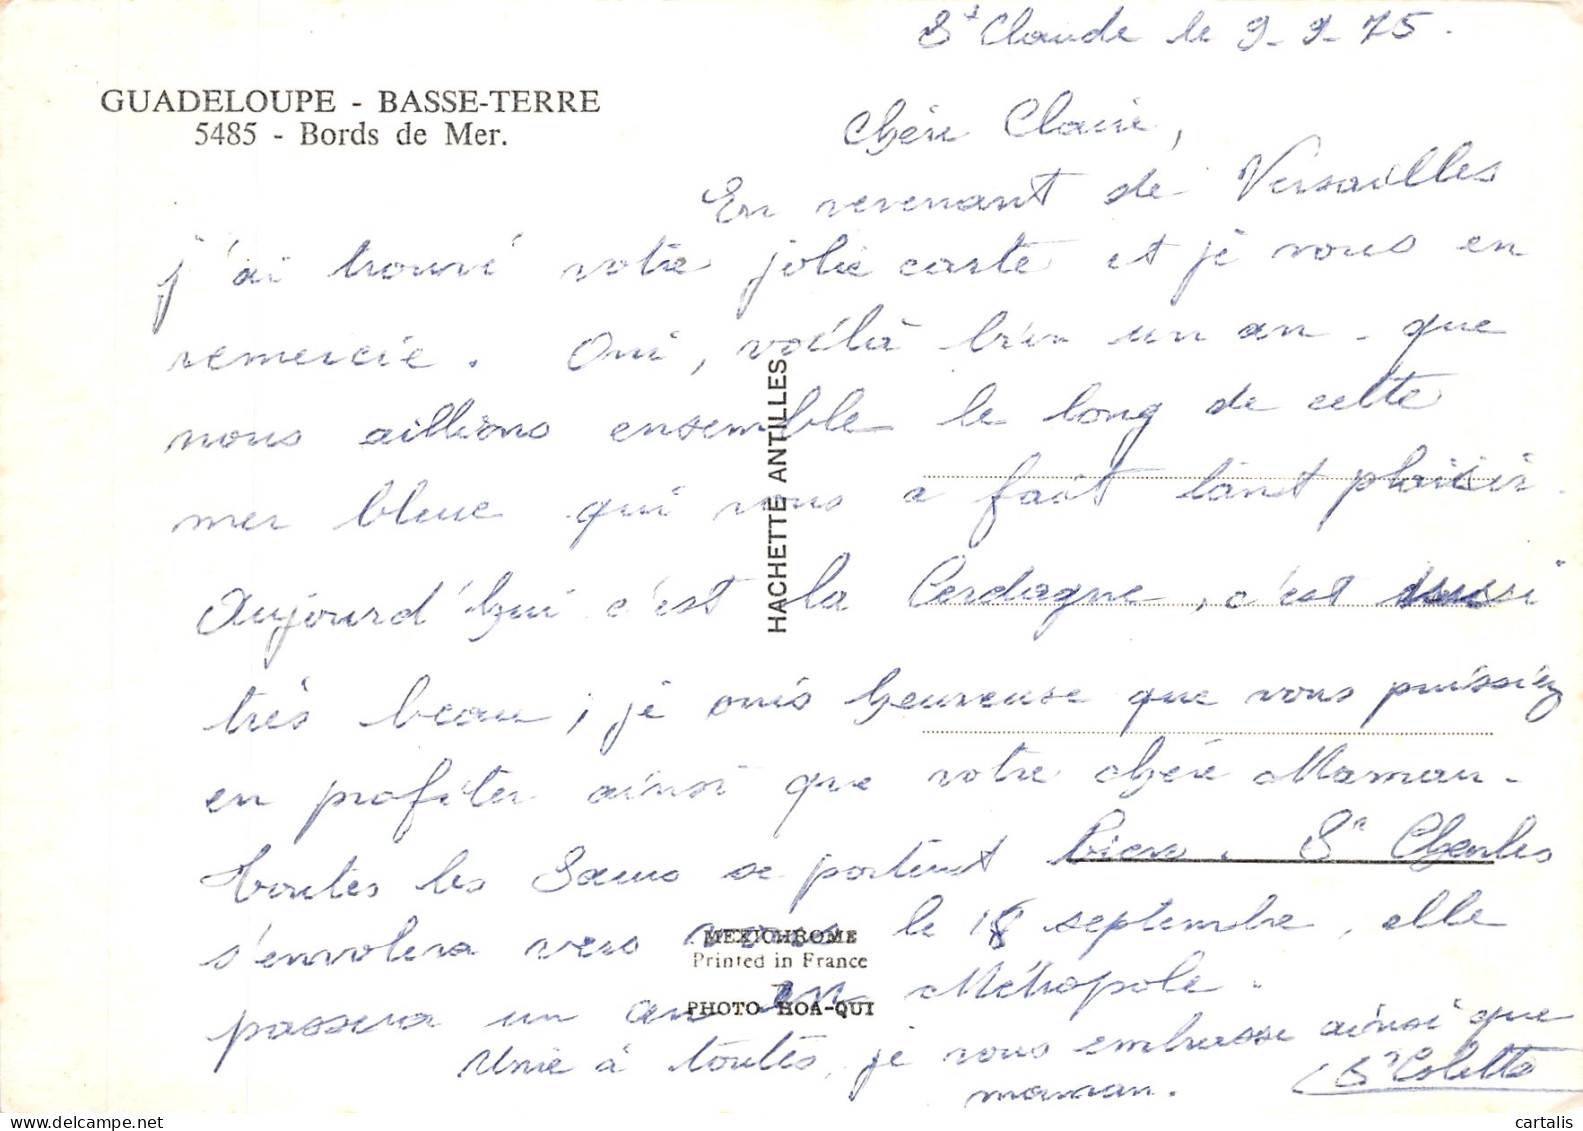 St Claude le 9-9-75.
GUADELOUPE - BASSE-TERRE
5485 - Bords de Mer.
Chère Claire,
En revenant de Versailles
j'ai trouvé votre jolie carte et je vous en
remercie. Oui, voilà bien un an que
nous allions ensemble le long de cette
mer bleue qui vous a fait tant plaisir.
Aujourd'hui c'est la Cerdagne, c'est aussi
très beau, je suis heureuse que vous puissiez
en profiter ainsi que votre chère Maman.
Toutes les Sœurs se portent bien. Sr Charles
s'envolera vers vous le 18 septembre, elle
passera un an en Métropole.
Unie à toutes, je vous embrasse ainsi que
maman. Sr Colette
HACHETTE ANTILLES
MEXICHROME
Printed in France
PHOTO HOA-QUI
cartalis